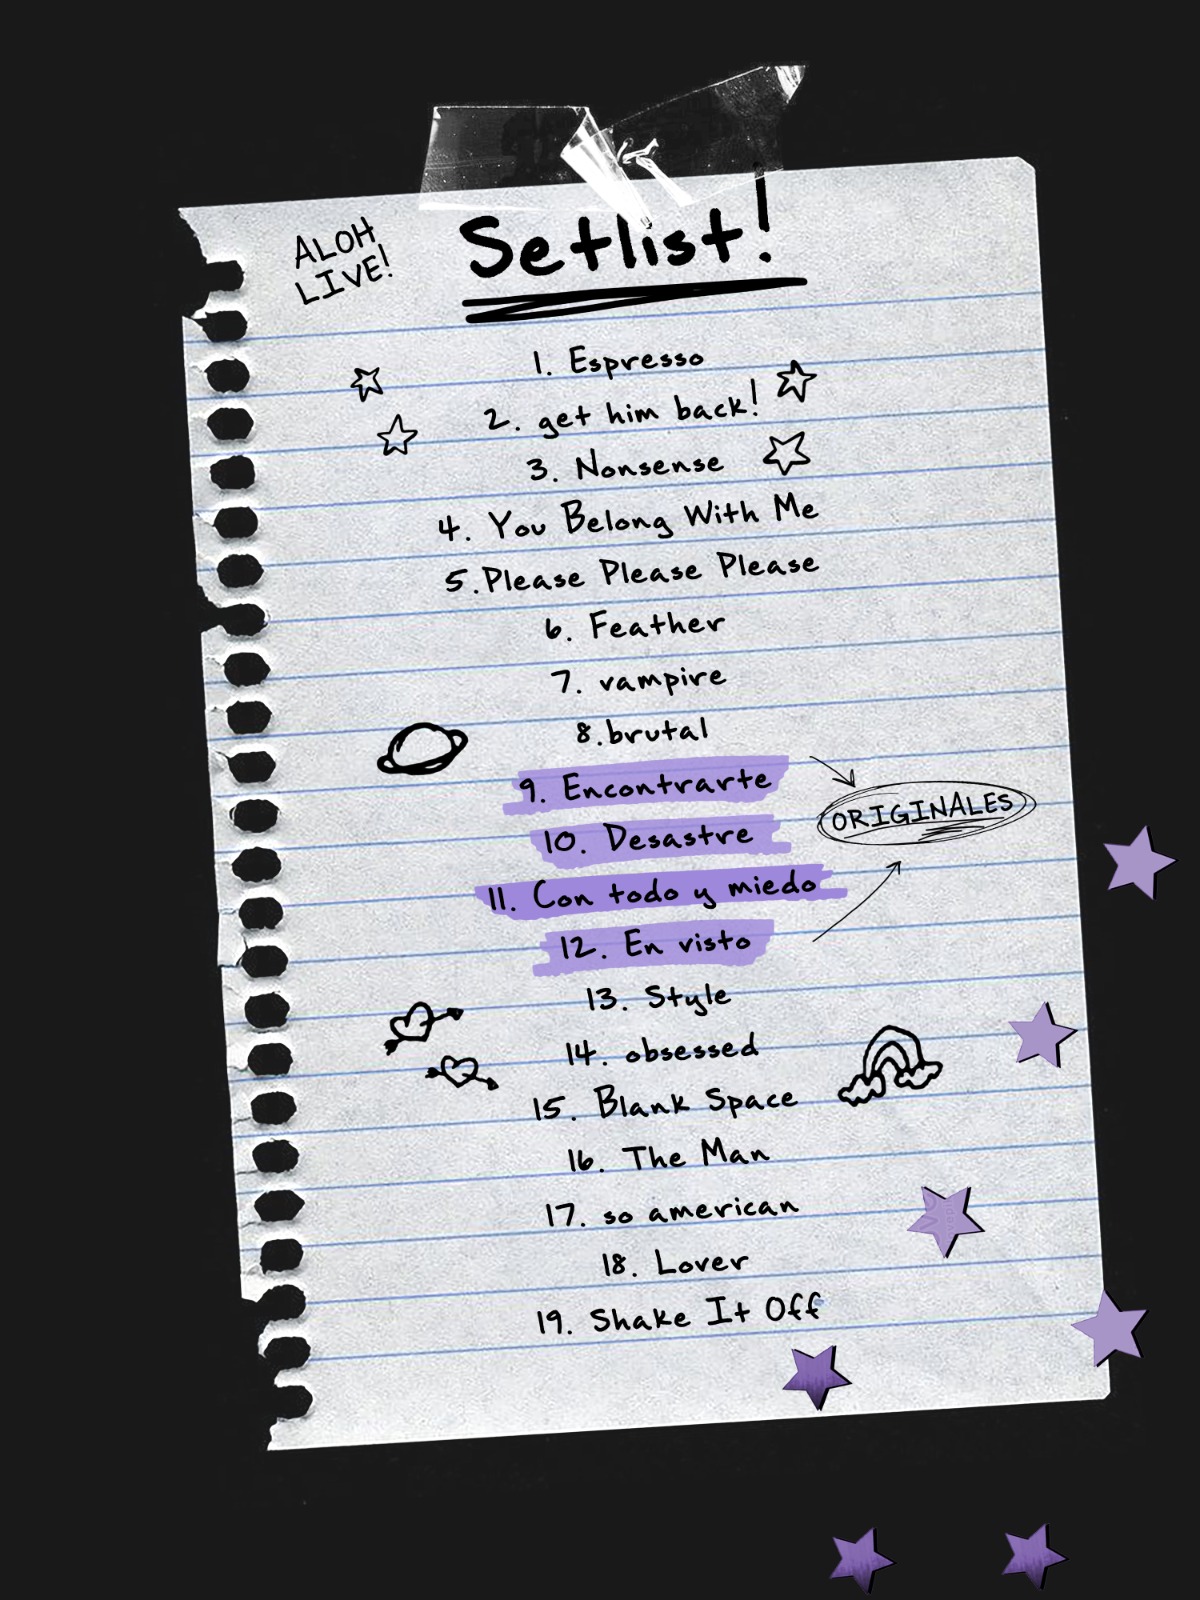 ALOH
LIVE!
Setlist!
1. Espresso
2. get him back!
3. Nonsense
4. You Belong With Me
5.Please Please Please
6. Feather
7. vampire
8.brutal
9. Encontrarte
10. Desastre
11. Con todo y miedo
12. En visto
ORIGINALES
13. Style
14. obsessed
15. Blank Space
16. The Man
17. so american
18. Lover
19. Shake It Off